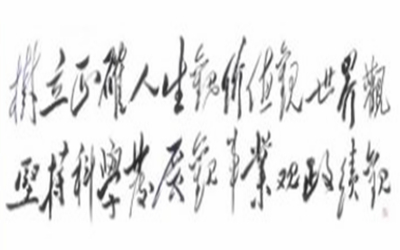 樹立正確人生觀价值觀世界觀
堅持科學发展觀事業观政績觀